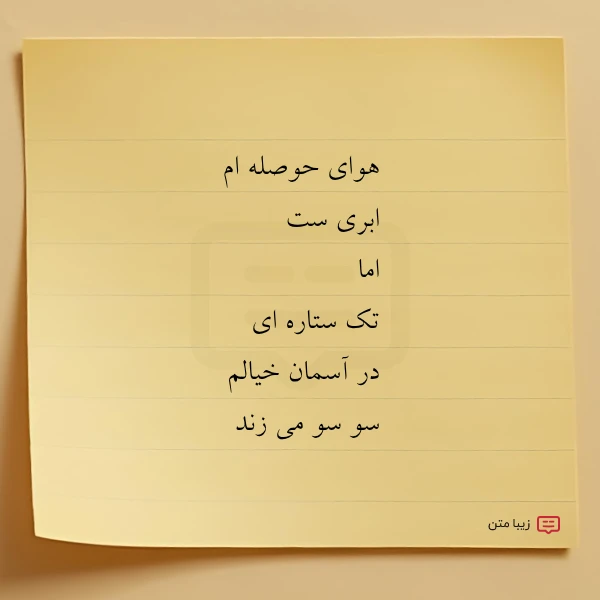 هوای حوصله ام
ابری ست
اما
تک ستاره ای
در آسمان خیالم
سو سو می زند
زیبا متن